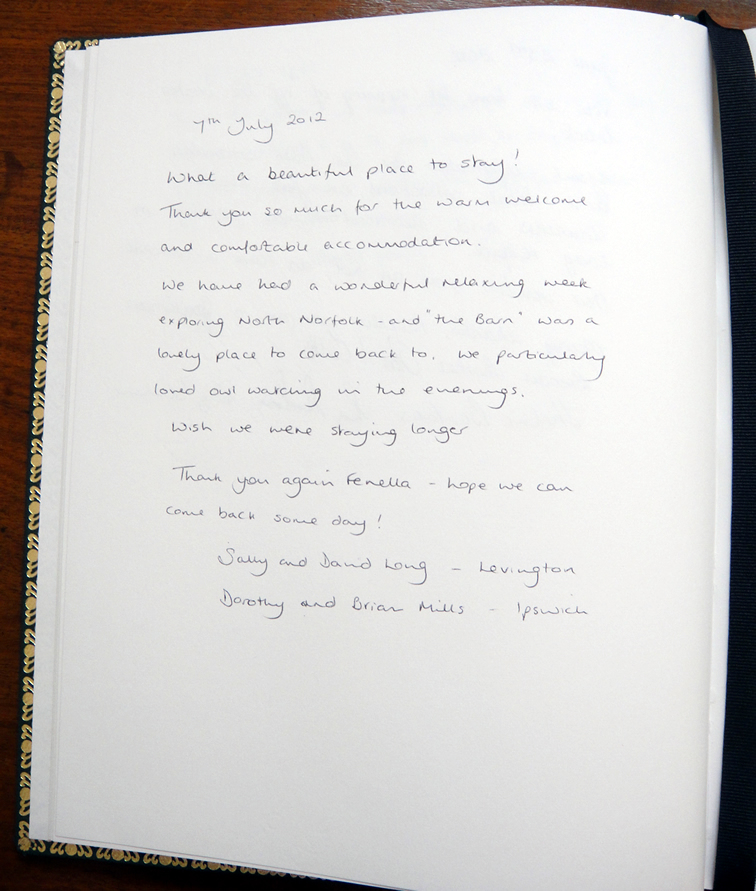 7th July 2012
What a beautiful place to stay!
Thank you so much for the warm welcome
and comfortable accommodation.
We have had a wonderful relaxing week
exploring North Norfolk - and "the Barn" was a
lovely place to come back to. We particularly
loved owl watching in the evenings.
Wish we were staying longer
Thank you again Fenella - hope we can
come back some day!
Sally and David Long - Levington
Dorothy and Brian Mills - Ipswich